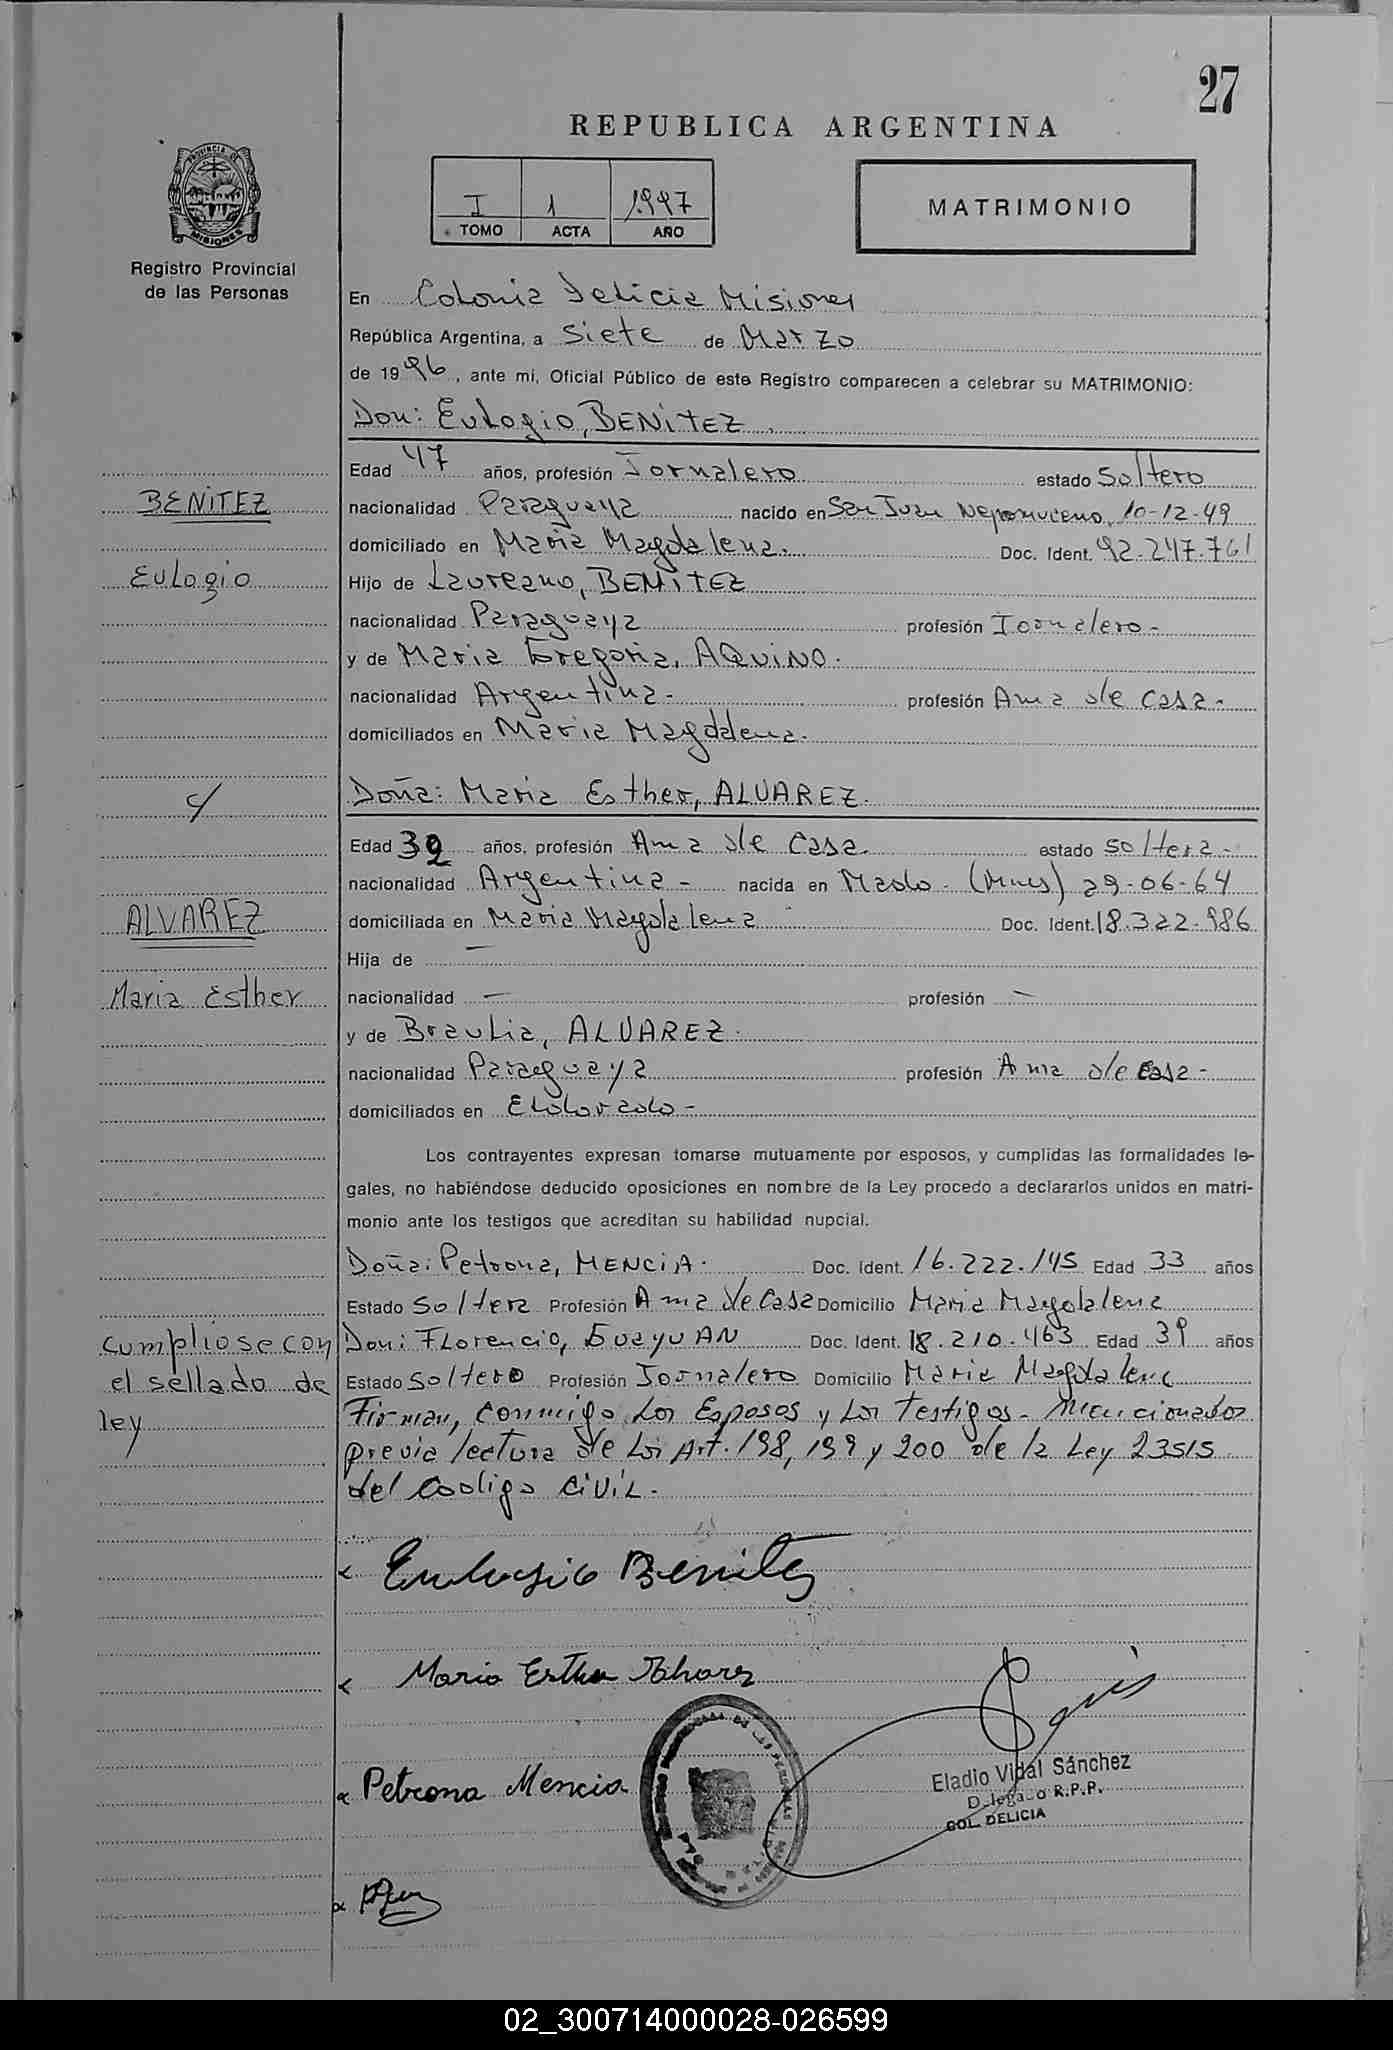 27
REPUBLICA ARGENTINA
PROVINCIA DE
MISIONES
Registro Provincial
de las Personas
I 1 1997
TOMO ACTA AÑO
MATRIMONIO
En Colonia Delicia Misiones
República Argentina, a Siete de Marzo
de 1996, ante mi, Oficial Público de este Registro comparecen a celebrar su MATRIMONIO:
Don: Eulogio, BENITEZ.
Edad 47 años, profesión Jornalero estado Soltero
BENITEZ
nacionalidad Paraguaya nacido en San Juan Nepomuceno, 10-12-49
domiciliado en Maria Magdalena. Doc. Ident. 92.247.761
Eulogio
Hijo de Laureano, BENITEZ
nacionalidad Paraguaya profesión Jornalero -
y de Maria Gregoria, AQUINO.
nacionalidad Argentina - profesión Ama de casa -
domiciliados en Maria Magdalena.
c/
Doña: Maria Esther, ALVAREZ.
Edad 32 años, profesión Ama de Casa. estado soltera -
nacionalidad Argentina - nacida en Mado - (Mnes) 29-06-64
ALVAREZ
domiciliada en Maria Magdalena Doc. Ident. 18.322.986
Hija de —
Maria Esther
nacionalidad — profesión —
y de Braulia, ALVAREZ.
nacionalidad Paraguaya profesión Ama de Casa -
domiciliados en Eldorado -
Los contrayentes expresan tomarse mutuamente por esposos, y cumplidas las formalidades le-
gales, no habiéndose deducido oposiciones en nombre de la Ley procedo a declararlos unidos en matri-
monio ante los testigos que acreditan su habilidad nupcial.
Doña: Petrona, MENCIA. Doc. Ident. 16.222.145 Edad 33 años
Estado Soltera Profesión Ama de Casa Domicilio Maria Magdalena
Don: Florencio, GuayuAN Doc. Ident. 18.210.463 Edad 39 años
Estado Soltero Profesión Jornalero Domicilio Maria Magdalena
cumpliose con
el sellado de
ley
Firman, conmigo los Esposos y los Testigos - mencionados
previa lectura de los Art. 198, 199 y 200 de la Ley 23515
del Codigo Civil.
Eulogio Benitez
Maria Esther Alvarez
Petrona Mencia
Eladio Vidal Sánchez
Delegado R.P.P.
COL. DELICIA
02_300714000028-026599